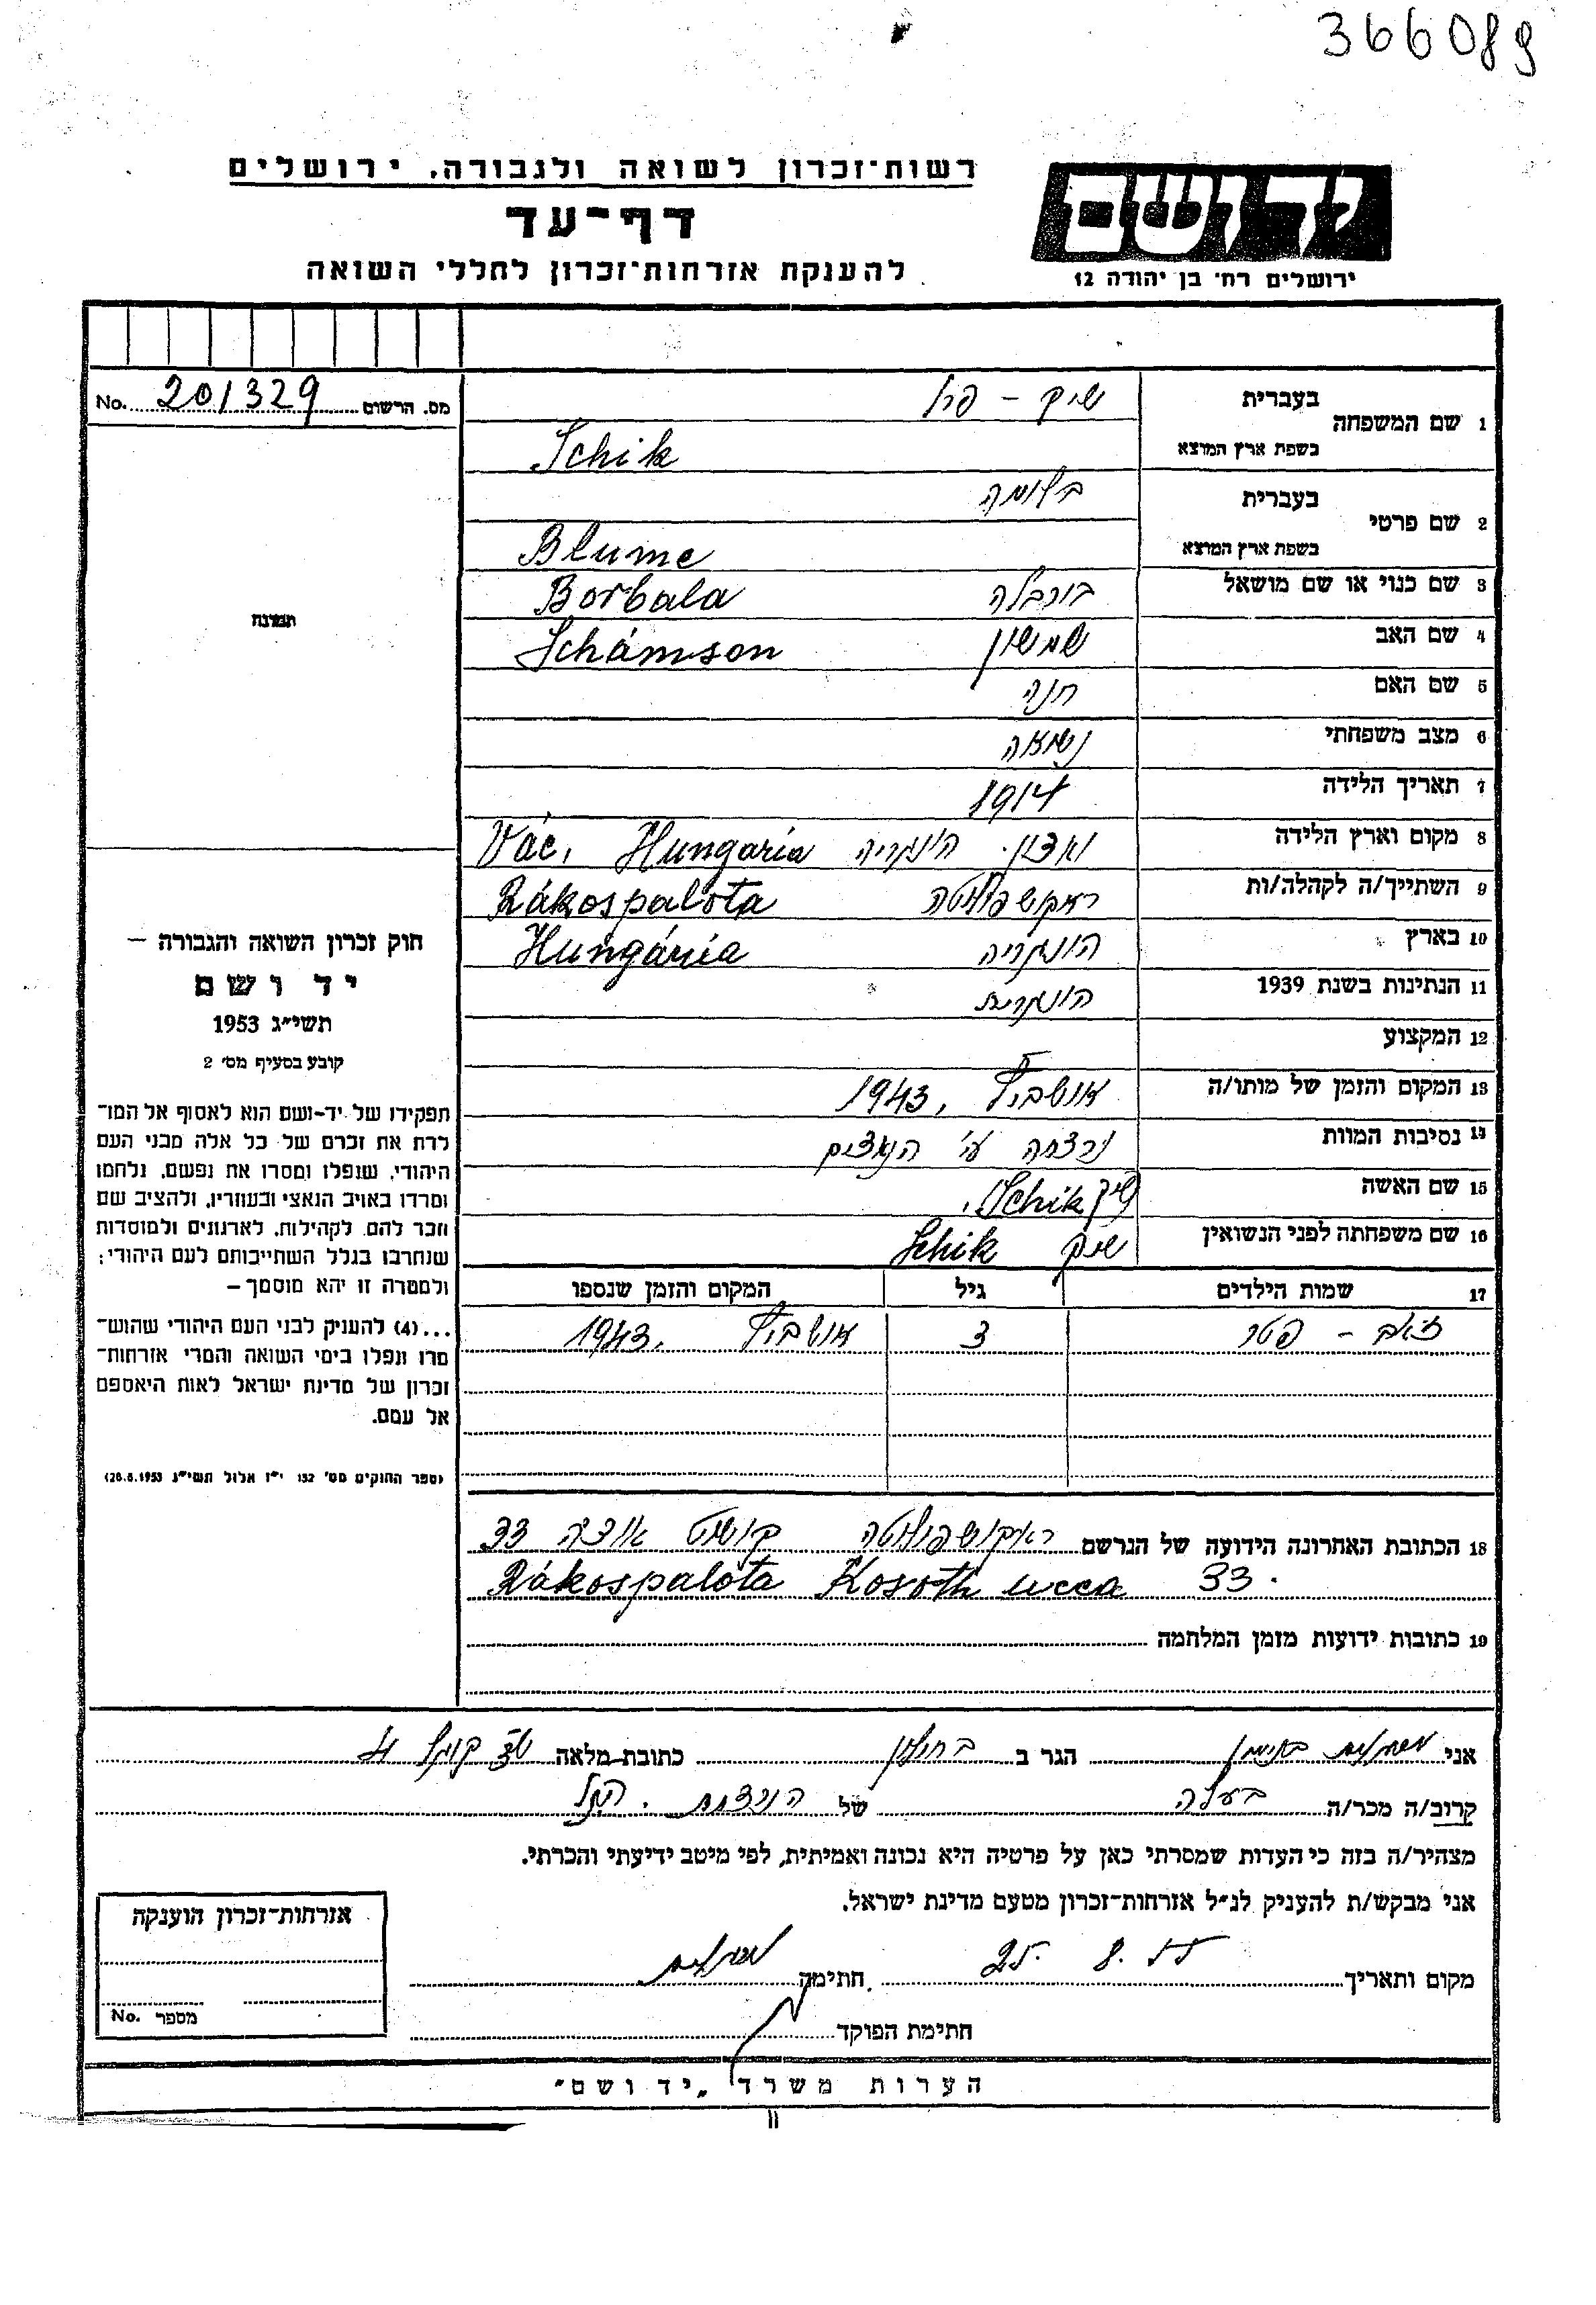 366089
רשות־זכרון לשואה ולגבורה, ירושלים
דף־עד
להענקת אזרחות־זכרון לחללי השואה
יד ושם
ירושלים רח׳ בן יהודה 12
מס. הרשום 201329 No.
תמונה
1 שם המשפחה בעברית שיק -
בשפת ארץ המוצא Schik
2 שם פרטי בעברית בלומה
בשפת ארץ המוצא Blume
3 שם כנוי או שם מושאל בורבלה Borbala
4 שם האב שמשון Schámson
5 שם האם חנה
6 מצב משפחתי נשואה
7 תאריך הלידה 1914
8 מקום וארץ הלידה ואצון. הונגריה Vác, Hungaria
9 השתייך/ה לקהלה/ות ראקושפולוטה Rákospalota
10 בארץ הונגריה Hungária
11 הנתינות בשנת 1939 הונגרית
12 המקצוע
13 המקום והזמן של מותו/ה אושביץ, 1943
14 נסיבות המוות נרצחה ע״י הנאצים
15 שם האשה שיק Schik,
16 שם משפחתה לפני הנשואין שיק Schik
17 שמות הילדים גיל המקום והזמן שנספו
זאב - פטר 3 אושביץ, 1943
18 הכתובת האחרונה הידועה של הנרשם ראקושפולוטה קושוט אוצה 33
Rákospalota Kosoth ucca 33.
19 כתובות ידועות מזמן המלחמה
חוק זכרון השואה והגבורה —
יד ושם
תשי״ג 1953
קובע בסעיף מס׳ 2
תפקידו של יד־ושם הוא לאסוף אל המו־
לדת את זכרם של כל אלה מבני העם
היהודי, שנפלו ומסרו את נפשם, נלחמו
ומרדו באויב הנאצי ובעוזריו, ולהציב שם
וזכר להם, לקהילות, לארגונים ולמוסדות
שנחרבו בגלל השתייכותם לעם היהודי;
ולמטרה זו יהא מוסמך —
...(4) להעניק לבני העם היהודי שהוש־
מדו ונפלו בימי השואה והמרי אזרחות־
זכרון של מדינת ישראל לאות היאספם
אל עמם.
(ספר החוקים מס׳ 132 י״ז אלול תשי״ג 28.8.1953)
אני הגר ב בחולון כתובת מלאה
קרוב/ה מכר/ה בעלה של הנרצחת. הנ״ל
מצהיר/ה בזה כי העדות שמסרתי כאן על פרטיה היא נכונה ואמיתית, לפי מיטב ידיעתי והכרתי.
אני מבקש/ת להעניק לנ״ל אזרחות־זכרון מטעם מדינת ישראל.
מקום ותאריך חתימה
חתימת הפוקד
אזרחות־זכרון הוענקה
מספר No.
הערות משרד „יד ושם״